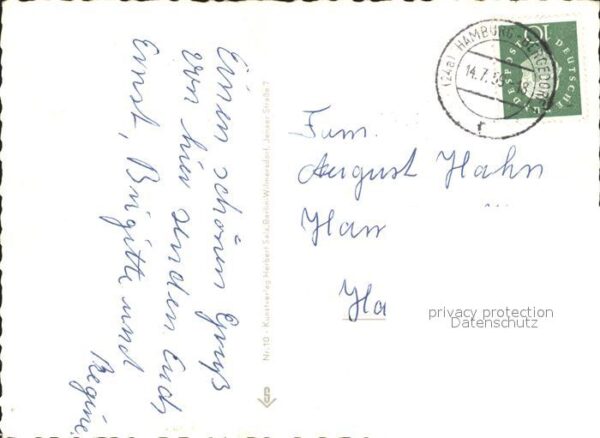 Einen schönen Gruß
von hier senden Euch
Ernst, Brigitte und
Regine.
Nr. 10 - Kunstverlag Herbert Selz, Berlin-Wilmersdorf, Jenaer Straße 7
(24a) HAMBURG-BERGEDORF
14.7.
f
10
DEUTSCHE BUNDESPOST
Fam.
August Hahn
Ham
Ha
privacy protection
Datenschutz